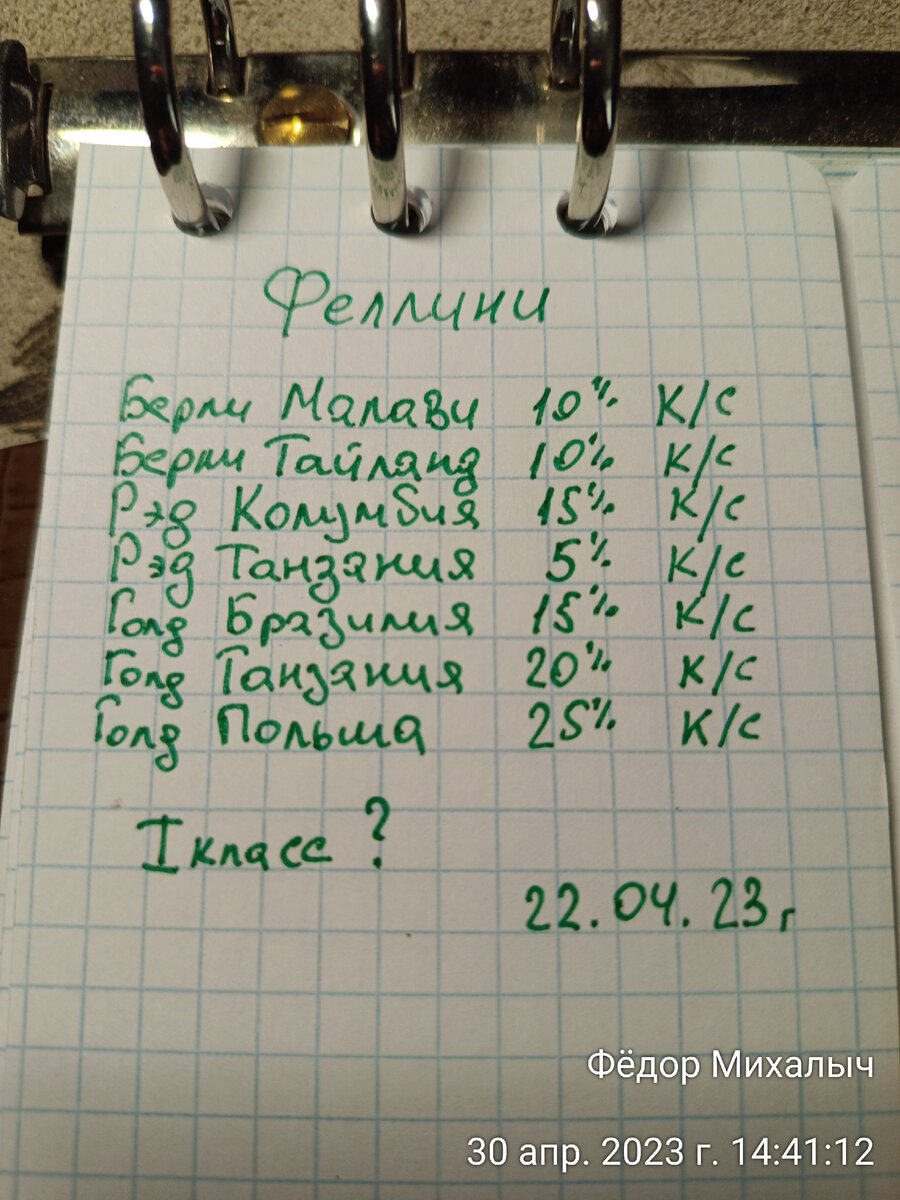 Феллини
Берли Малави 10% К/С
Берли Тайланд 10% К/С
Рэд Колумбия 15% К/С
Рэд Танзания 5% К/С
Голд Бразилия 15% К/С
Голд Танзания 20% К/С
Голд Польша 25% К/С
I класс ?
22.04.23г
Фёдор Михалыч
30 апр. 2023 г. 14:41:12